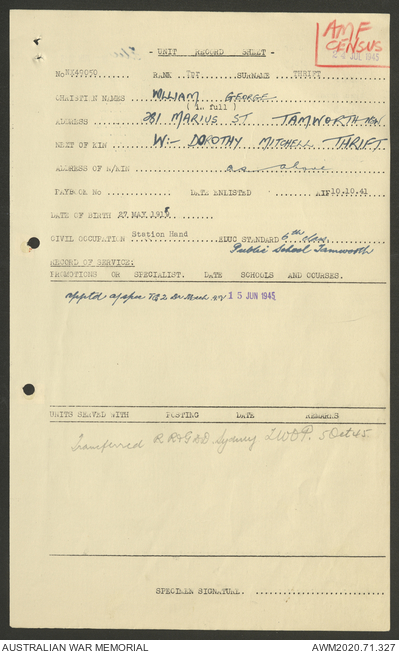 AMF
CENSUS
JUL 1945
- UNIT RECORD SHEET -
No NX49050 RANK Tpr SURNAME THRIFT
CHRISTIAN NAMES WILLIAM GEORGE
(in full)
ADDRESS 281 MARIUS ST. TAMWORTH NSW
NEXT OF KIN W:- DOROTHY MITCHELL THRIFT
ADDRESS OF N/KIN as above
PAYBOOK No DATE ENLISTED AIF 10.10.41
DATE OF BIRTH 27 MAY 1915
CIVIL OCCUPATION Station Hand EDUC STANDARD 6th Class
Public School Tamworth
RECORD OF SERVICE:
PROMOTIONS OR SPECIALIST. DATE SCHOOLS AND COURSES.
15 JUN 1945
UNITS SERVED WITH POSTING DATE REMARKS
Transferred R R&GDD Sydney LWOP. 5 Oct 45
SPECIMEN SIGNATURE.
AUSTRALIAN WAR MEMORIAL AWM2020.71.327